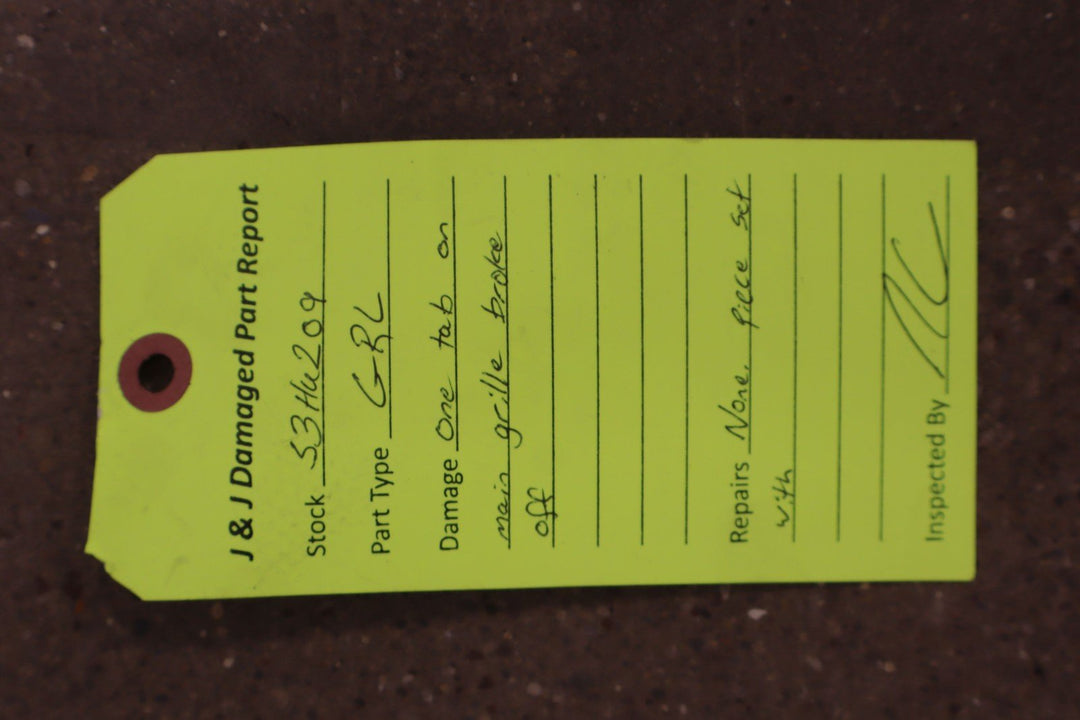 J & J Damaged Part Report
Stock 53HU209
Part Type GRL
Damage One tab on
main grille broke
off
Repairs None. Piece set
with
Inspected By